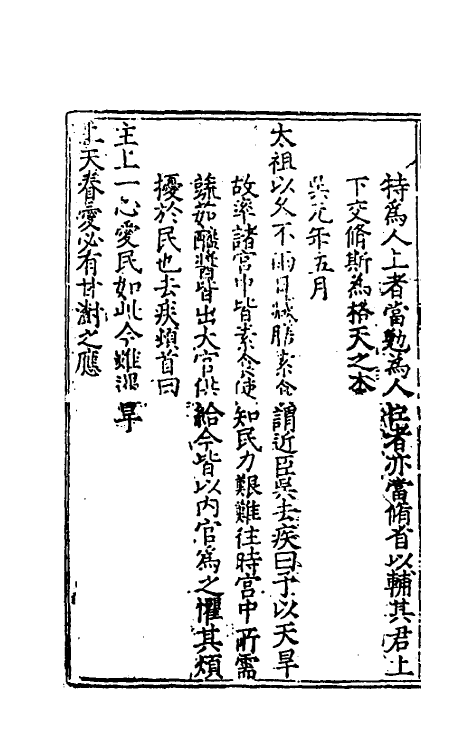 特為人上者當勉為人臣者亦當脩省以輔其君上
下交脩斯為格天之本
吳元年五月
太祖以久不雨日減膳素食謂近臣吳去疾曰予以天旱
故率諸宮中皆素食使知民力艱難往時宮中所需
蔬茹醯醬皆出大官供給今皆以內官為之懼其煩
擾於民也去疾頓首曰
主上一心愛民如此今雖濕旱
上天眷愛必有甘澍之應